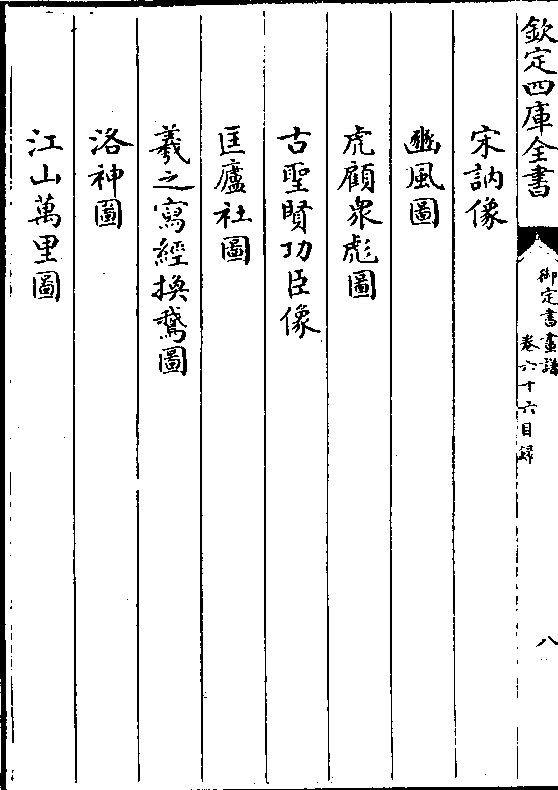 欽定四庫全書
御定書畫譜
卷六十六目録
八
宋訥像
豳風圖
虎顧衆彪圖
古聖賢功臣像
匡廬社圖
羲之寫經換鵞圖
洛神圖
江山萬里圖